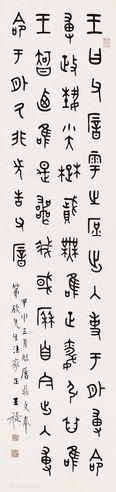 王曰父厝雩之庶出入事于外尃命
尃政埶小大楚賦無唯正昏弘其唯
王智廼唯是喪我或歷自今出入尃
命于外厥非先告父厝
甲申三月臨厝鼎文奉
先生法家正 王禔